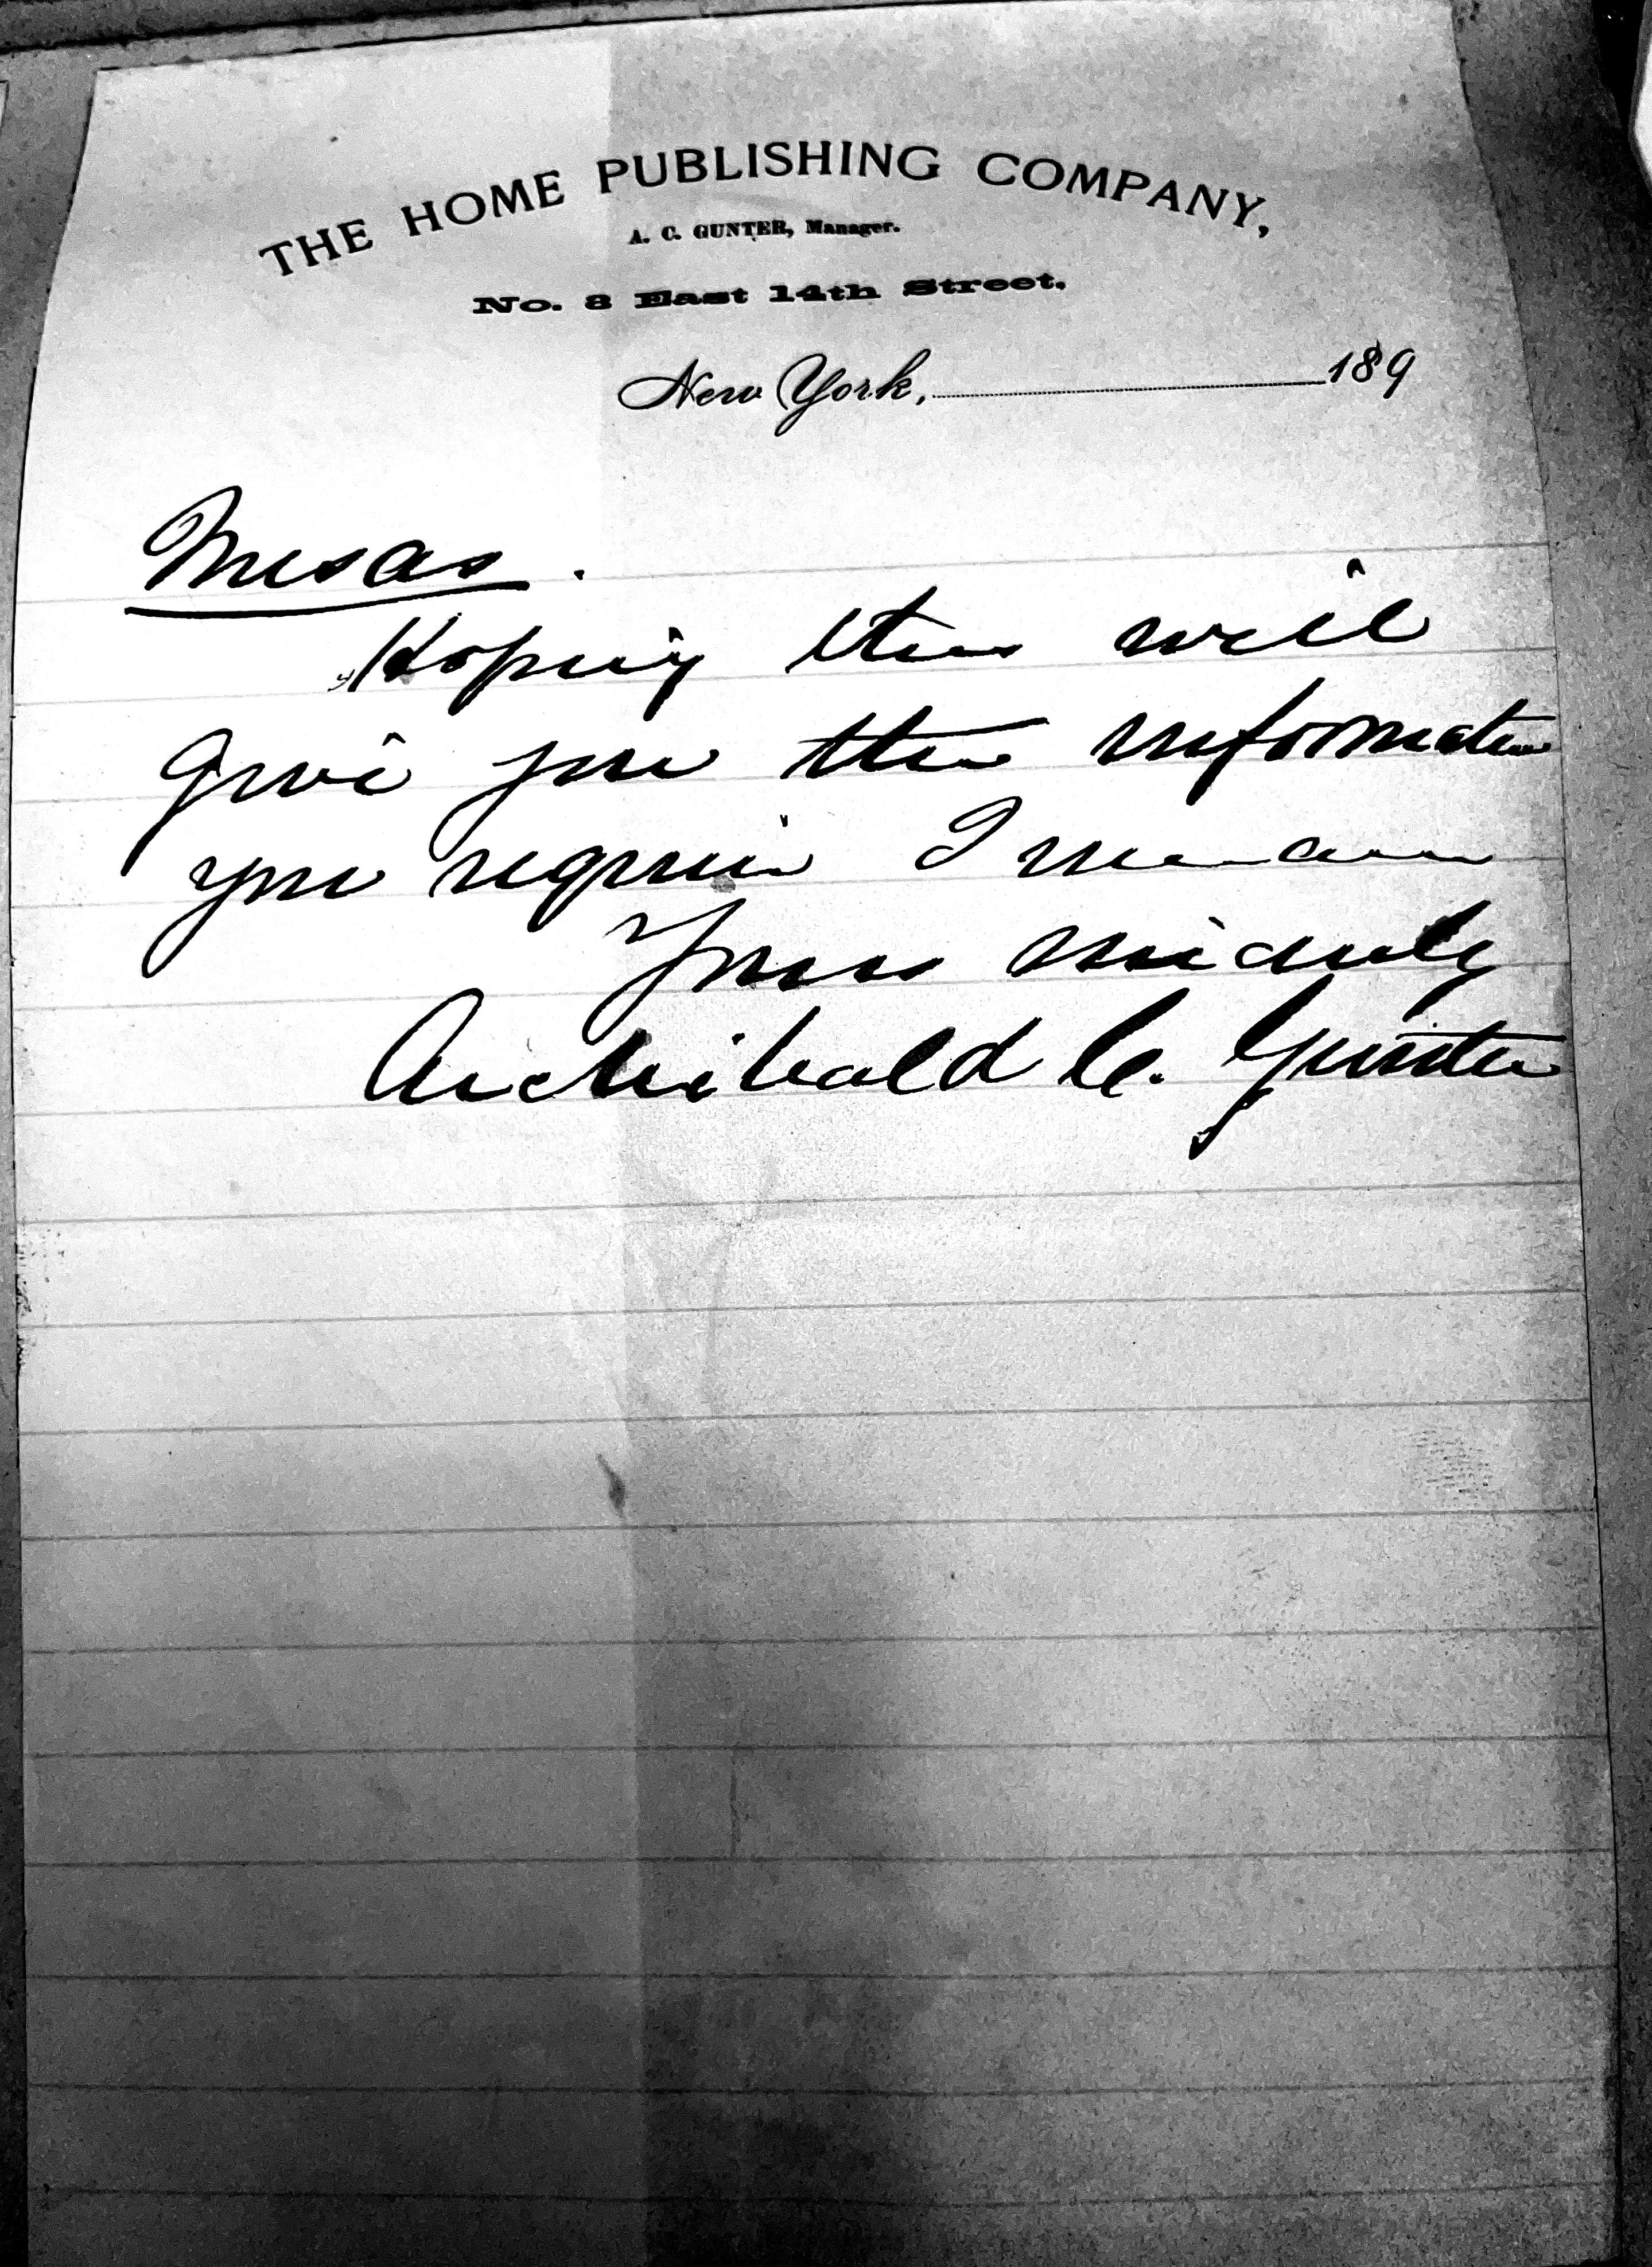 THE HOME PUBLISHING COMPANY,
A. C. GUNTER, Manager.
No. 8 East 14th Street.
New York, 189
Hoping this will
give you the information
you require I remain
Yours sincerely
Archibald C. Gunter